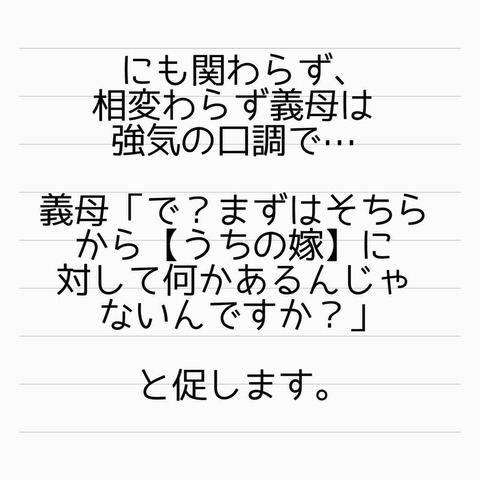 にも関わらず、
相変わらず義母は
強気の口調で…
義母「で？まずはそちら
から【うちの嫁】に
対して何かあるんじゃ
ないんですか？」
と促します。